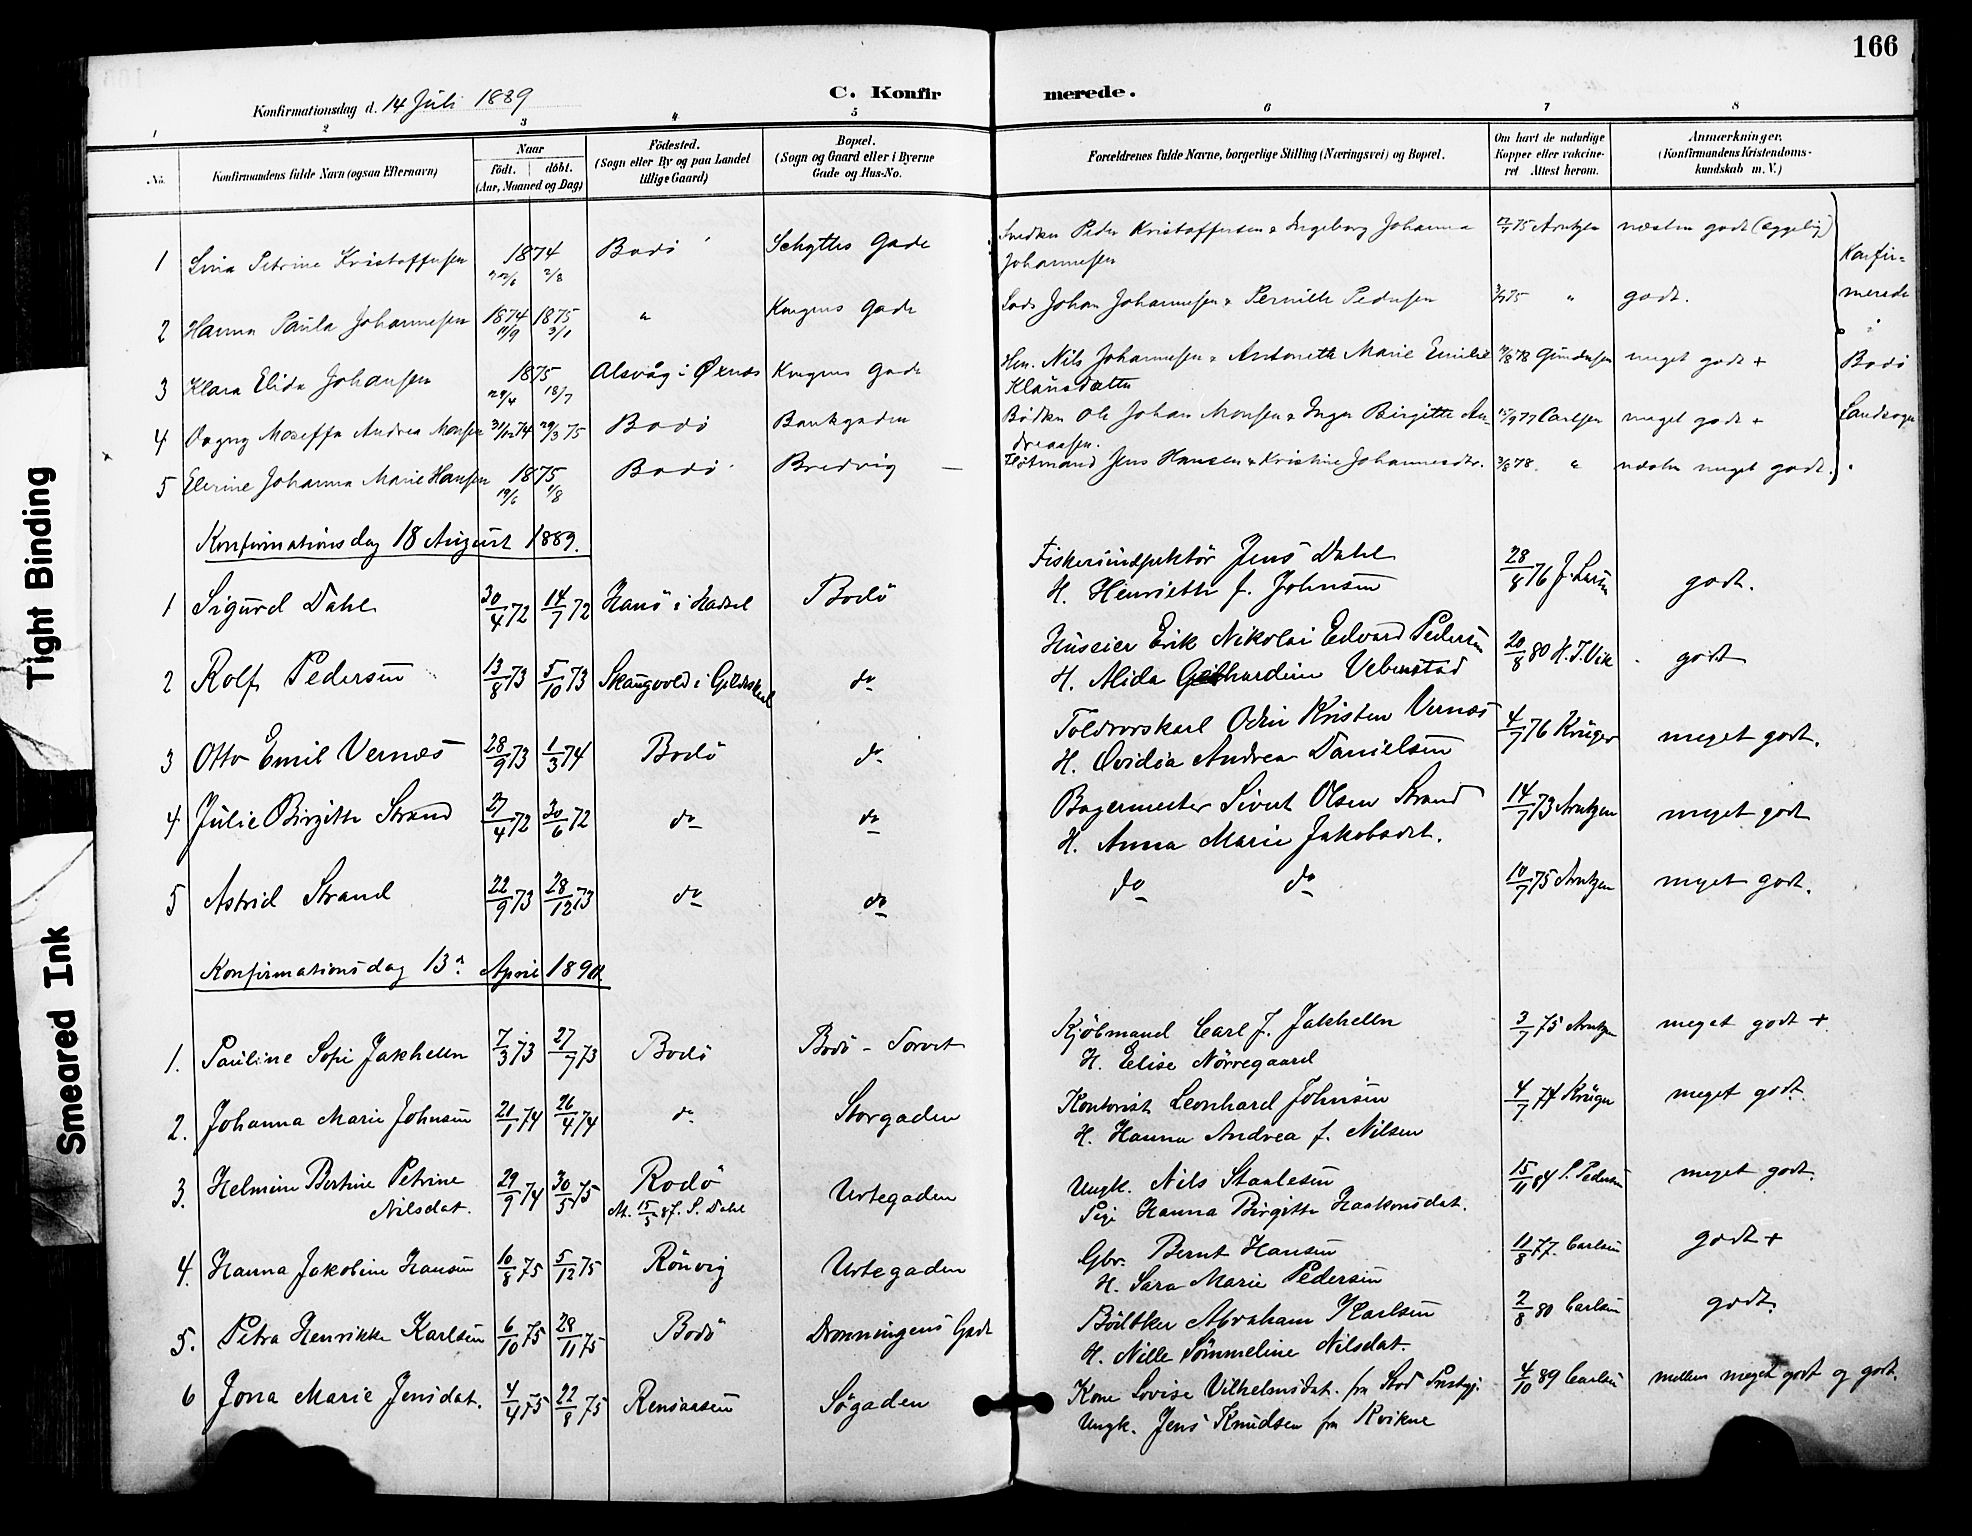 166
Konfirmationsdag d. 14 Juli 1889
C. Konfirmerede.
1 2 3 4 5 6 7 8
No. Konfirmandens fulde Navn (ogsaa Efternavn)
Naar
födt. döbt.
(Aar, Maaned og Dag)
Födested.
(Sogn eller By og paa Landet
tillige Gaard)
Bopæl.
(Sogn og Gaard eller i Byerne
Gade og Hus-No.
Forældrenes fulde Navne, borgerlige Stilling (Næringsvei) og Bopæl.
Om havt de naturlige
Kopper eller vakcine-
ret Attest herom.
Anmærkninger.
(Konfirmandens Kristendoms-
kundskab m. V.)
1 Lina Petrine Kristoffersen 1874 22/6 2/8 Bodö Schyttes Gade Snedker Peder Kristoffersen & Ingeborg Johanna Johannessen Arntzen næsten godt
2 Hanna Paula Johannessen 1874 1875 3/1 " Kongens Gade Johan Johannessen & Pernille Pedersen 75 " godt.
3 Klara Elida Johansen 1875 29/4 18/7 Alsvåg i Øxnæs Kongens Gade Nils Johannessen & Antonette Marie Emilie Klausdatter 78 Gundersen meget godt +
4 Dagny Andrea Monsen 31/12 74 29/3 75 Bodö Bankgaden Bödker Ole Johan Monsen & Inger Birgitte Andreassen. 77 Carlsen meget godt +
5 Elerine Johanna Marie Hansen 1875 19/6 1/8 Bodö Bredvig Jens Hansen & Kristine Johannesdtr. 78. " næsten meget godt.
Konfir-
merede
i
Bodö
Landsogn
Konfirmationsdag 18 August 1889.
1 Sigurd Dahl 30/4 72 14/7 72 Hanö i Hadsel Bodö Fiskeriinspektör Jens Dahl
H. Henriette f. Johnsen 28/8 76 godt.
2 Rolf Pedersen 13/8 73 5/10 73 Skaugvold i Gildeskaal do Huseier Erik Nikolai Edvard Pedersen
H. Alida Gerhardine Vebenstad 20/8 80 H. J. Vik godt
3 Otto Emil Vernæs 28/9 73 1/3 74 Bodö do Toldvorskarl Odin Kristen Vernæs
H. Ovidia Andrea Danielsen 4/7 76 Krüger meget godt.
4 Julie Birgitte Strand 27/4 72 30/6 72 do do Bagermester Sivert Olsen Strand
H. Anna Marie Jakobsdt. 14/7 73 Arntzen meget godt
5 Astrid Strand 22/9 73 28/12 73 do do do do 10/7 75 Arntzen meget godt.
Konfirmationsdag 13de April 1890
1. Pauline Sofie Jakhelln 7/3 73 27/7 73 Bodö Bodö - Torvet Kjöbmand Carl J. Jakhelln
H. Elise Nörregaard 3/7 75 Arntzen meget godt +.
2. Johanna Marie Johnsen 21/1 74 26/4 74 do Storgaden Kontorist Leonhard Johnsen
H. Hanna Andrea f. Nilsen 4/7 74 Krüger meget godt.
3. Helmine Bertine Petrine
Nilsdat. 29/9 74 30/5 75 Rodö
At. 15/5 87. S. Dahl Urtegaden Ungk. Nils Staalesen
Pige Hanna Birgitte Haakonsdat. 15/11 84 Pedersen meget godt.
4. Hanna Jakobine Hansen 10/8 75 5/12 75 Rönvig Urtegaden Gbr. Bernt Hansen
H. Sara Marie Pedersen 11/8 77. Carlsen godt +
5. Petra Henrikke Karlsen 6/10 75 28/11 75 Bodö Dronningens Gade Bödtker Abraham Karlsen
H. Nille Sömmeline Nilsdat. 2/8 80 Carlsen godt.
6 Jona Marie Jensdat. 4/4 75 22/8 75 Rensaasen Sögaden Kone Lovise Vilhelmsdat. fra Stod
Ungk. Jens Knudsen fra Kvikne 4/10 89 Carlsen mellem meget godt og godt.
Tight Binding
Smeared Ink